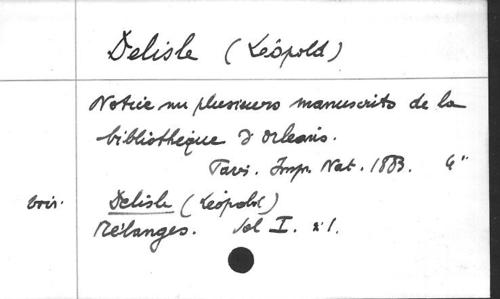 Delisle (Léopold)
Notice sur plusieurs manuscrits de la
bibliothèque d'Orléans.
Paris. Imp. Nat. 1883. 4°
voir. Delisle (Léopold)
Mélanges. Vol I. n° 1.